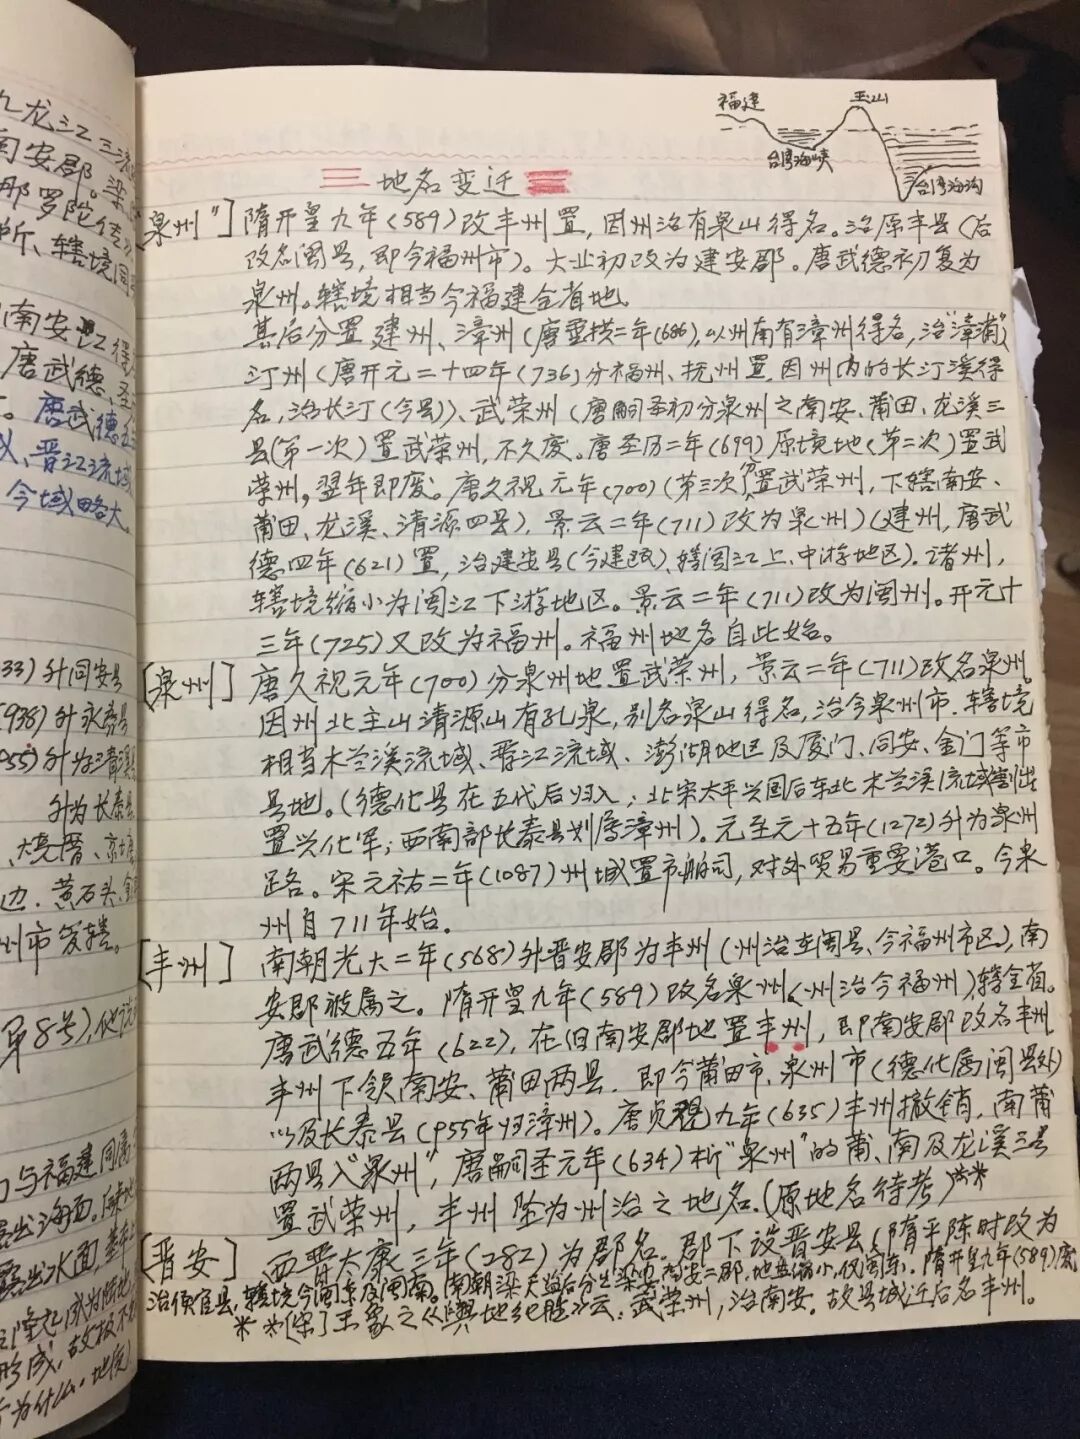 九龙江三流
南安郡。梁
那罗陀传
所、辖境同
南安江得
唐武德、圣
。唐武德五
以、晋江流域
今域略大。
33)升同安县
(938)升永春县
955)升为清溪县
升为长泰县
、焼厝、
边、黄石头、金
州市管辖。
第8号),他说
与福建同属
露出海面。
露出水面,
隆起成为陆地
形成,故极不
个为什么·地质)
福建
玉山
台湾海峡
台湾海沟
三 地名变迁
[泉州"] 隋开皇九年(589)改丰州置,因州治有泉山得名。治原丰县(后
改名闽县,即今福州市)。大业初改为建安郡。唐武德初复为
泉州。辖境相当今福建全省地。
其后分置建州、漳州(唐垂拱二年(686),以州南有漳州得名,治"漳浦")
汀州(唐开元二十四年(736)分福州、抚州置,因州内的长汀溪得
名,治长汀(今县))、武荣州(唐嗣圣初分泉州之南安、莆田、龙溪三
县(第一次)置武荣州,不久废。唐圣历二年(699)原境地(第二次)置武
荣州,翌年即废。唐久视元年(700)(第三次)分置武荣州,下辖南安、
莆田、龙溪、清源四县),景云二年(711)改为泉州)(建州,唐武
德四年(621)置,治建安县(今建瓯)、辖闽江上、中游地区)。诸州,
辖境缩小为闽江下游地区。景云二年(711)改为闽州。开元十
三年(725)又改为福州。福州地名自此始。
[泉州] 唐久视元年(700)分泉州地置武荣州,景云二年(711)改名泉州。
因州北主山清源山有孔泉,别名泉山得名,治今泉州市.辖境
相当木兰溪流域、晋江流域、澎湖地区及厦门、同安、金门等市
县地。(德化县在五代后归入;北宋太平兴国后东北木兰溪流域割出
置兴化军;西南部长泰县划属漳州)。元至元十五年(1272)升为泉州
路。宋元祐二年(1087)州城置市舶司,对外贸易重要港口。今泉
州自711年始.
[丰州] 南朝光大二年(568)升晋安郡为丰州(州治在闽县、今福州市区),南
安郡被属之。隋开皇九年(589)改名泉州(州治今福州),辖全省。
唐武德五年(622),在旧南安郡地置丰州,即南安郡改名丰州.
丰州下领南安、莆田两县.即今莆田市、泉州市(德化属闽县处)
以及长泰县(955年归漳州)。唐贞观九年(635)丰州撤销,南莆
两县入"泉州",唐嗣圣元年(634)析"泉州"的莆、南及龙溪三县
置武荣州,丰州坠为州治之地名.(原地名待考)**
[晋安] 西晋太康三年(282)为郡名.郡下设晋安县(隋平陈时改为
治侯官县,辖境今闽东及闽南。南朝梁天监后分出梁安、南安二郡,地益缩小,仅闽东.隋开皇九年(589)废
**[宋]王象之《舆地纪胜》云:武荣州,治南安.故县城迁后名丰州。